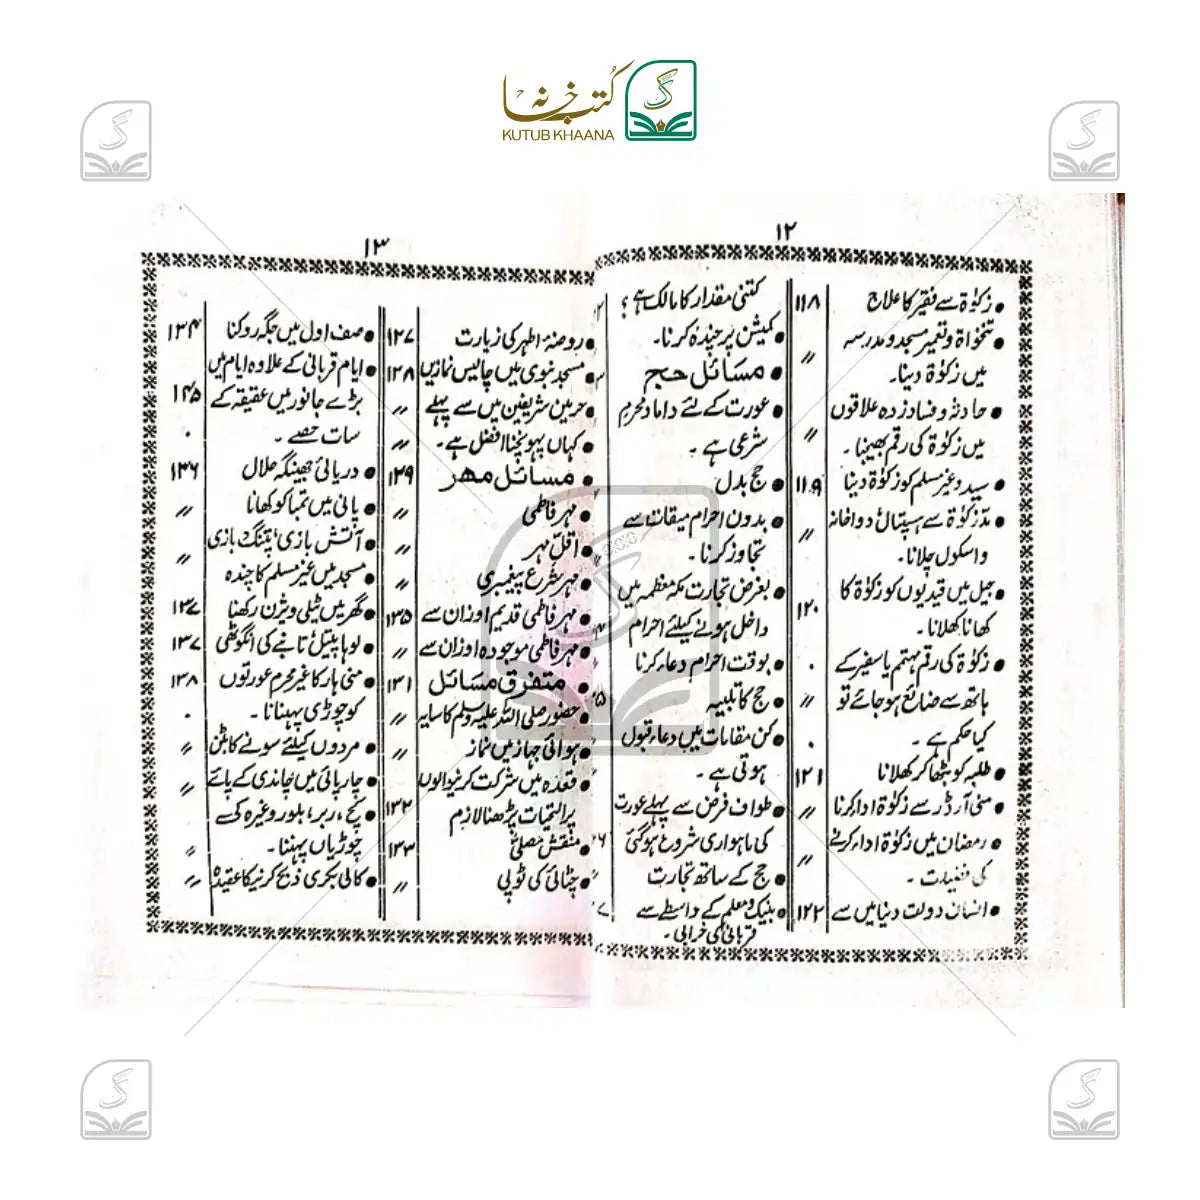 کتب خانہ
KUTUB KHAANA
۱۲
زکوٰۃ سے فقیر کا علاج ۱۱۸
تنخواہ و تعمیر مسجد و مدرسہ
میں زکوٰۃ دینا۔ 〃
حادثہ و فساد زدہ علاقوں
میں زکوٰۃ کی رقم بھیجنا۔ 〃
سید و غیر مسلم کو زکوٰۃ دینا ۱۱۹
مدّ زکوٰۃ سے ہسپتال دواخانہ
و اسکول چلانا۔ 〃
جیل میں قیدیوں کو زکوٰۃ کا
کھانا کھلانا۔ ۱۲۰
زکوٰۃ کی رقم مہتمم یا سفیر کے
ہاتھ سے ضائع ہوجائے تو 〃
کیا حکم ہے۔
طلبہ کو بٹھا کر کھلانا ۱۲۱
منی آرڈر سے زکوٰۃ ادا کرنا 〃
رمضان میں زکوٰۃ ادا کرنے
کی فضیلت۔ 〃
انسان دولت دنیا میں سے ۱۲۲
کتنی مقدار کا مالک ہے؟
کمیشن پر چندہ کرنا۔
مسائل حج
عورت کے لئے داماد محرم
شرعی ہے۔
حج بدل
بدون احرام میقات سے
تجاوز کرنا۔
بغرض تجارت مکہ معظمہ میں
داخل ہونے کیلئے احرام
بوقت احرام دعاء کرنا
حج کا تلبیہ
کن مقامات میں دعاء قبول
ہوتی ہے۔
طواف فرض سے پہلے عورت
کی ماہواری شروع ہوگئی
حج کے ساتھ تجارت
بینک و معلم کے واسطے سے
قربانی کی خرابی۔
۱۳
روضۂ اطہر کی زیارت ۱۲۷
مسجد نبوی میں چالیس نمازیں ۱۲۸
حرمین شریفین میں سے پہلے 〃
کہاں پہونچنا افضل ہے۔ 〃
مسائل مہر ۱۲۹
مہر فاطمی 〃
اقلّ مہر 〃
مہر شرع پیغمبری 〃
مہر فاطمی قدیم اوزان سے ۱۳۵
مہر فاطمی موجودہ اوزان سے 〃
متفرق مسائل ۱۳۱
حضور صلی اللہ علیہ وسلم کا سایہ 〃
ہوائی جہاز میں نماز 〃
قعدہ میں شرکت کرنیوالوں
پر التحیات پڑھنا لازم ۱۳۲
منقش مصلیٰ ۱۳۳
چٹائی کی ٹوپی 〃
صف اول میں جگہ روکنا ۱۳۴
ایام قربانی کے علاوہ ایام میں
بڑے جانور میں عقیقہ کے ۱۴۵
سات حصے۔
دریائی جھینگہ حلال ۱۳۶
پانی میں تمباکو کھانا 〃
آتش بازی، پتنگ بازی
مسجد میں غیر مسلم کا چندہ 〃
گھر میں ٹیلی ویژن رکھنا ۱۳۷
لوہا پیتل تانبے کی انگوٹھی ۱۳۷
منی ہار کا غیر محرم عورتوں ۱۳۸
کو چوڑی پہنانا۔
مردوں کیلئے سونے کا بٹن 〃
چارپائی میں چاندی کے پائے 〃
کچ، ربر، بلور وغیرہ کی
چوڑیاں پہننا۔ 〃
کالی بکری ذبح کرنیکا عقیدہ 〃